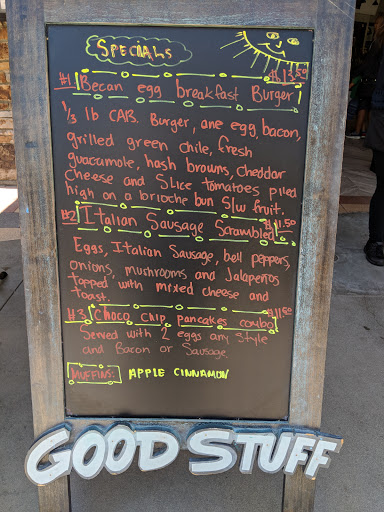 SPECIALS
#1 Becan egg breakfast Burger $13.50
1/3 lb CAB. Burger, one egg, bacon,
grilled green chile, fresh
guacamole, hash browns, cheddar
cheese and SLICE tomatoes piled
high on a brioche bun S/w fruit.
#2 Italian Sausage Scrambled $11.50
Eggs, Italian Sausage, bell peppers,
onions, mushrooms and Jalapeños
topped with mixed cheese and
toast.
#3 Choco chip pancakes combo $11.50
Served with 2 eggs any style
and Bacon or Sausage.
MUFFINS: APPLE CINNAMON
GOOD STUFF